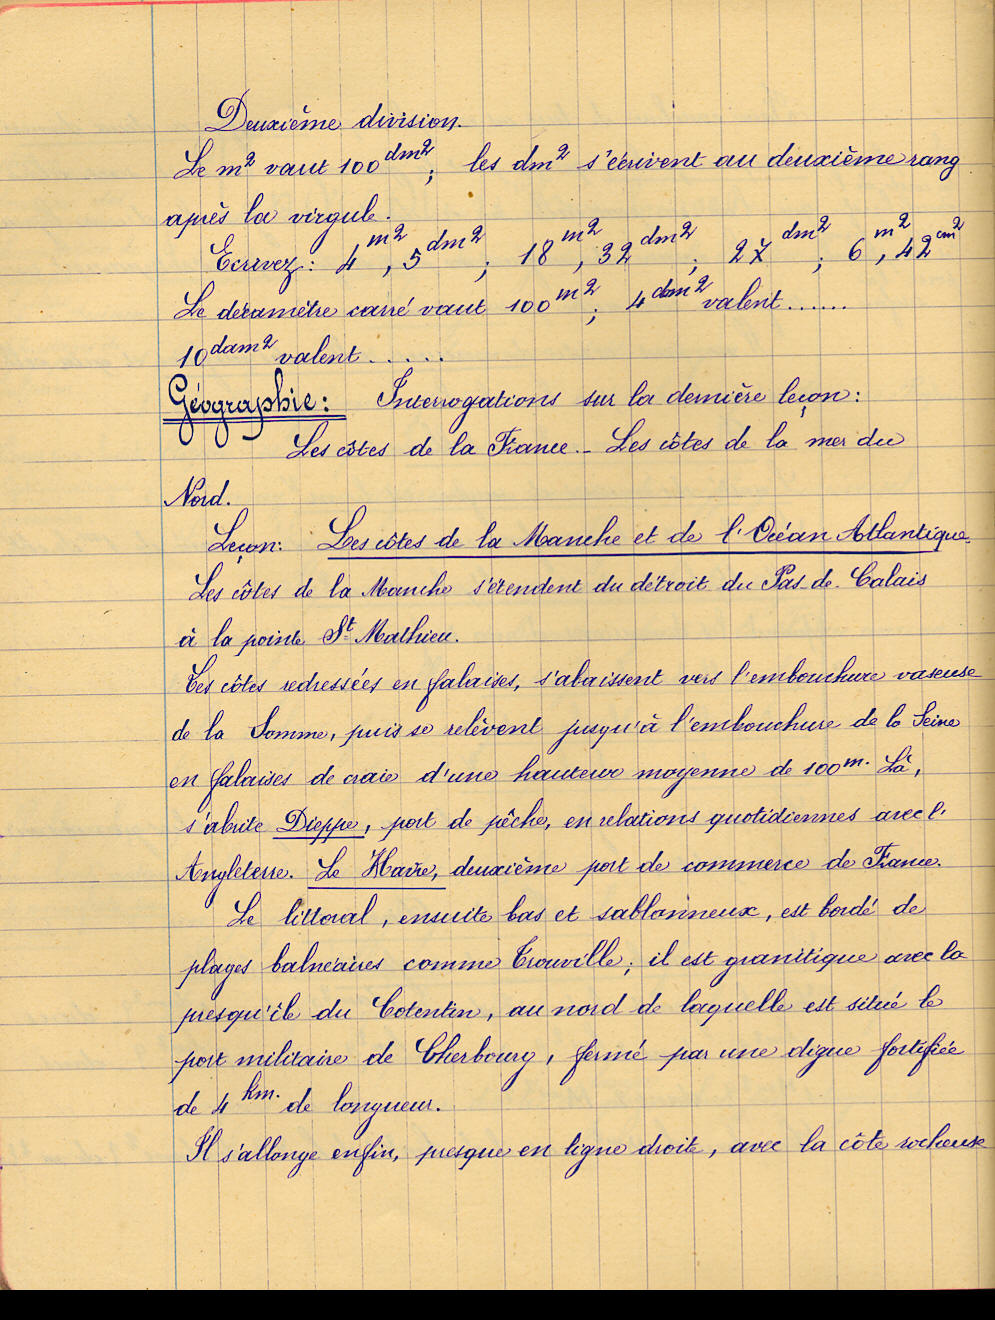 Deuxième division.
Le m² vaut 100 dm² ; les dm² s'écrivent au deuxième rang
après la virgule.
Ecrivez : 4 m², 5 dm² ; 18 m², 32 dm² ; 27 dm² ; 6 m², 42 cm²
Le décamètre carré vaut 100 m² ; 4 dam² valent ......
10 dam² valent .....
Géographie : Interrogations sur la dernière leçon :
Les côtes de la France _ Les côtes de la mer du
Nord.
Leçon : Les côtes de la Manche et de l'Océan Atlantique.
Les côtes de la Manche s'étendent du détroit du Pas-de-Calais
à la pointe St Mathieu.
Ces côtes redressées en falaises, s'abaissent vers l'embouchure vaseuse
de la Somme, puis se relèvent jusqu'à l'embouchure de la Seine
en falaises de craie d'une hauteur moyenne de 100 m. Là,
s'abrite Dieppe, port de pêche, en relations quotidiennes avec l'
Angleterre. Le Havre, deuxième port de commerce de France.
Le littoral, ensuite bas et sablonneux, est bordé de
plages balnéaires comme Trouville ; il est granitique avec la
presqu'île du Cotentin, au nord de laquelle est situé le
port militaire de Cherbourg, fermé par une digue fortifiée
de 4 km. de longueur.
Il s'allonge enfin, presque en ligne droite, avec la côte rocheuse